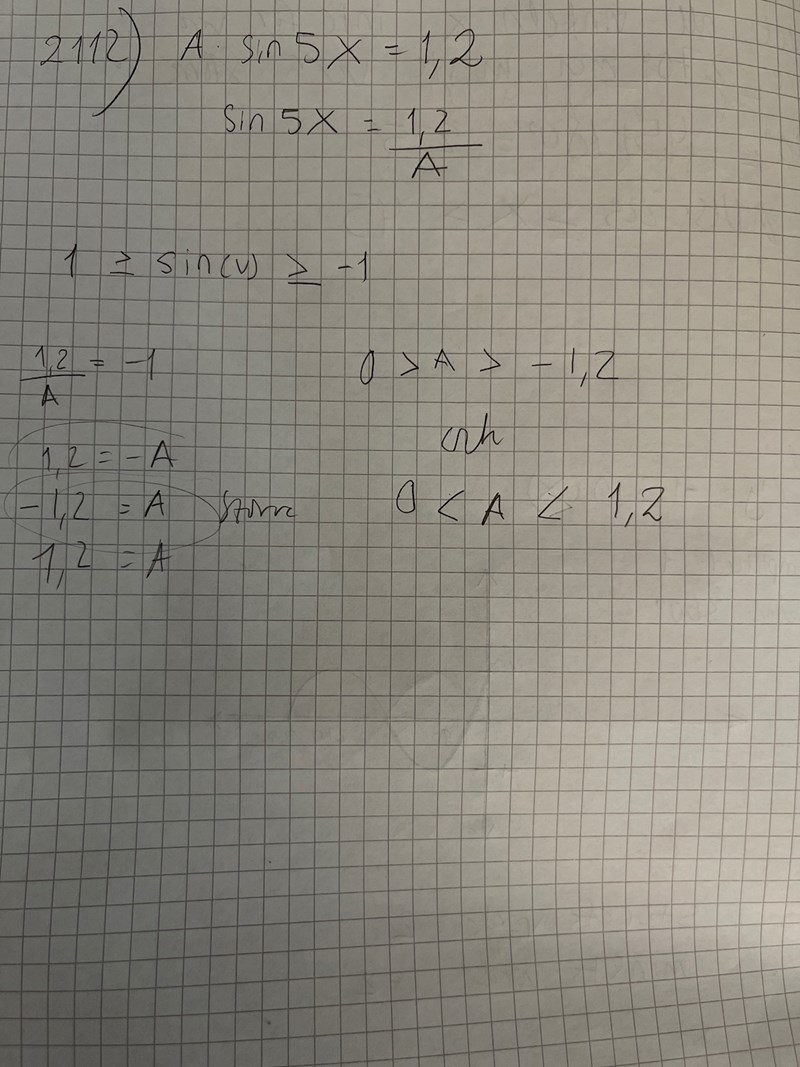 2112) A · sin 5x = 1,2
sin 5x = 1,2 / A
1 ≥ sin(v) ≥ -1
1,2 / A = -1
1,2 = -A
-1,2 = A större
1,2 = A
0 > A > -1,2
och
0 < A < 1,2